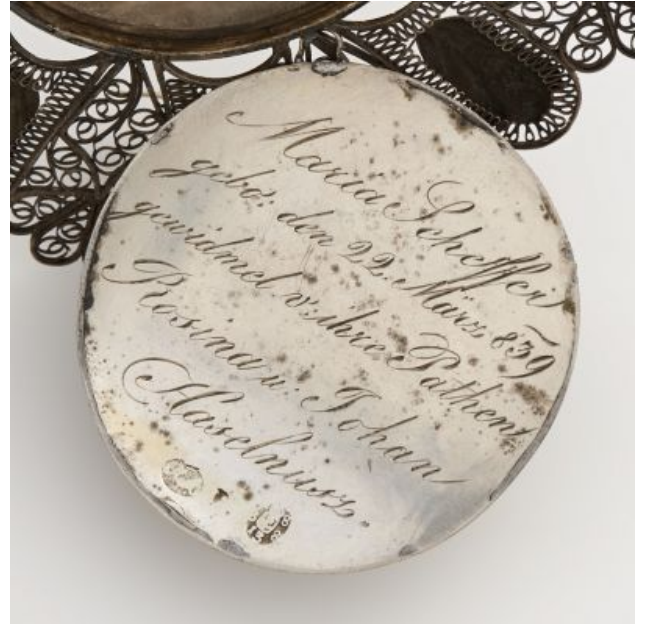 Maria Scheffer
gebo: den 22. März 839
gewidmet v: ihre Pathent
Rosina u. Johan
Haselnusz.
13